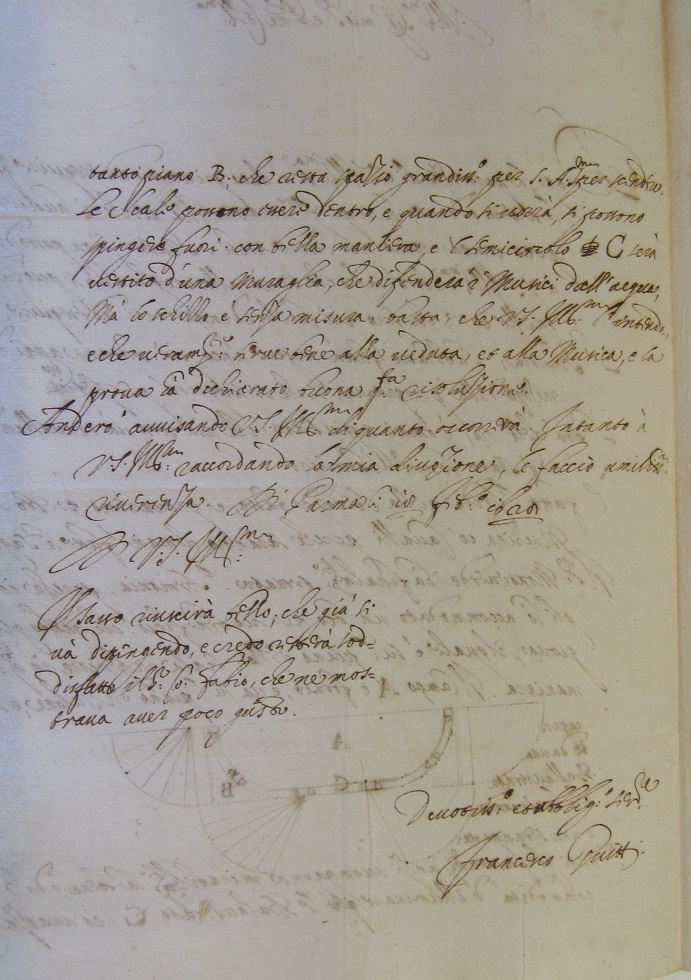 tanto piano B; che resta spazio grandiss.o per S. A. Sma per scendere.
Le Scale possono essere dentro, e quando si vorrà, si possono
spingere fuori con bella maniera, e 'l semicircolo C serà
vestito d'una muraglia, che difenderà i Musici dall'acqua,
Mà lo schizzo è senza misura, basta che V.S. Ill.ma l'intenda,
e che veram.te serve bene alla veduta, et alla Musica, e la
prova hà dichiarato buona q.sta risoluzione.
Anderò avvisando V.S. Ill.ma di quanto occorrerà. Intanto à
V.S. Ill.ma raccordando la mia divozione, le faccio umiliss.a
riverenza. Di Parma li 18 feb.o 1628
Di V.S. Ill.ma
Il Satto riuscirà bello, che già si
và dipingendo, e credo resterà sod=
disfatto il S.r C. Fabio, che ne mos=
trava aver poco gusto.
Devotiss.o et obblig.o ser.re
Francesco Guitti